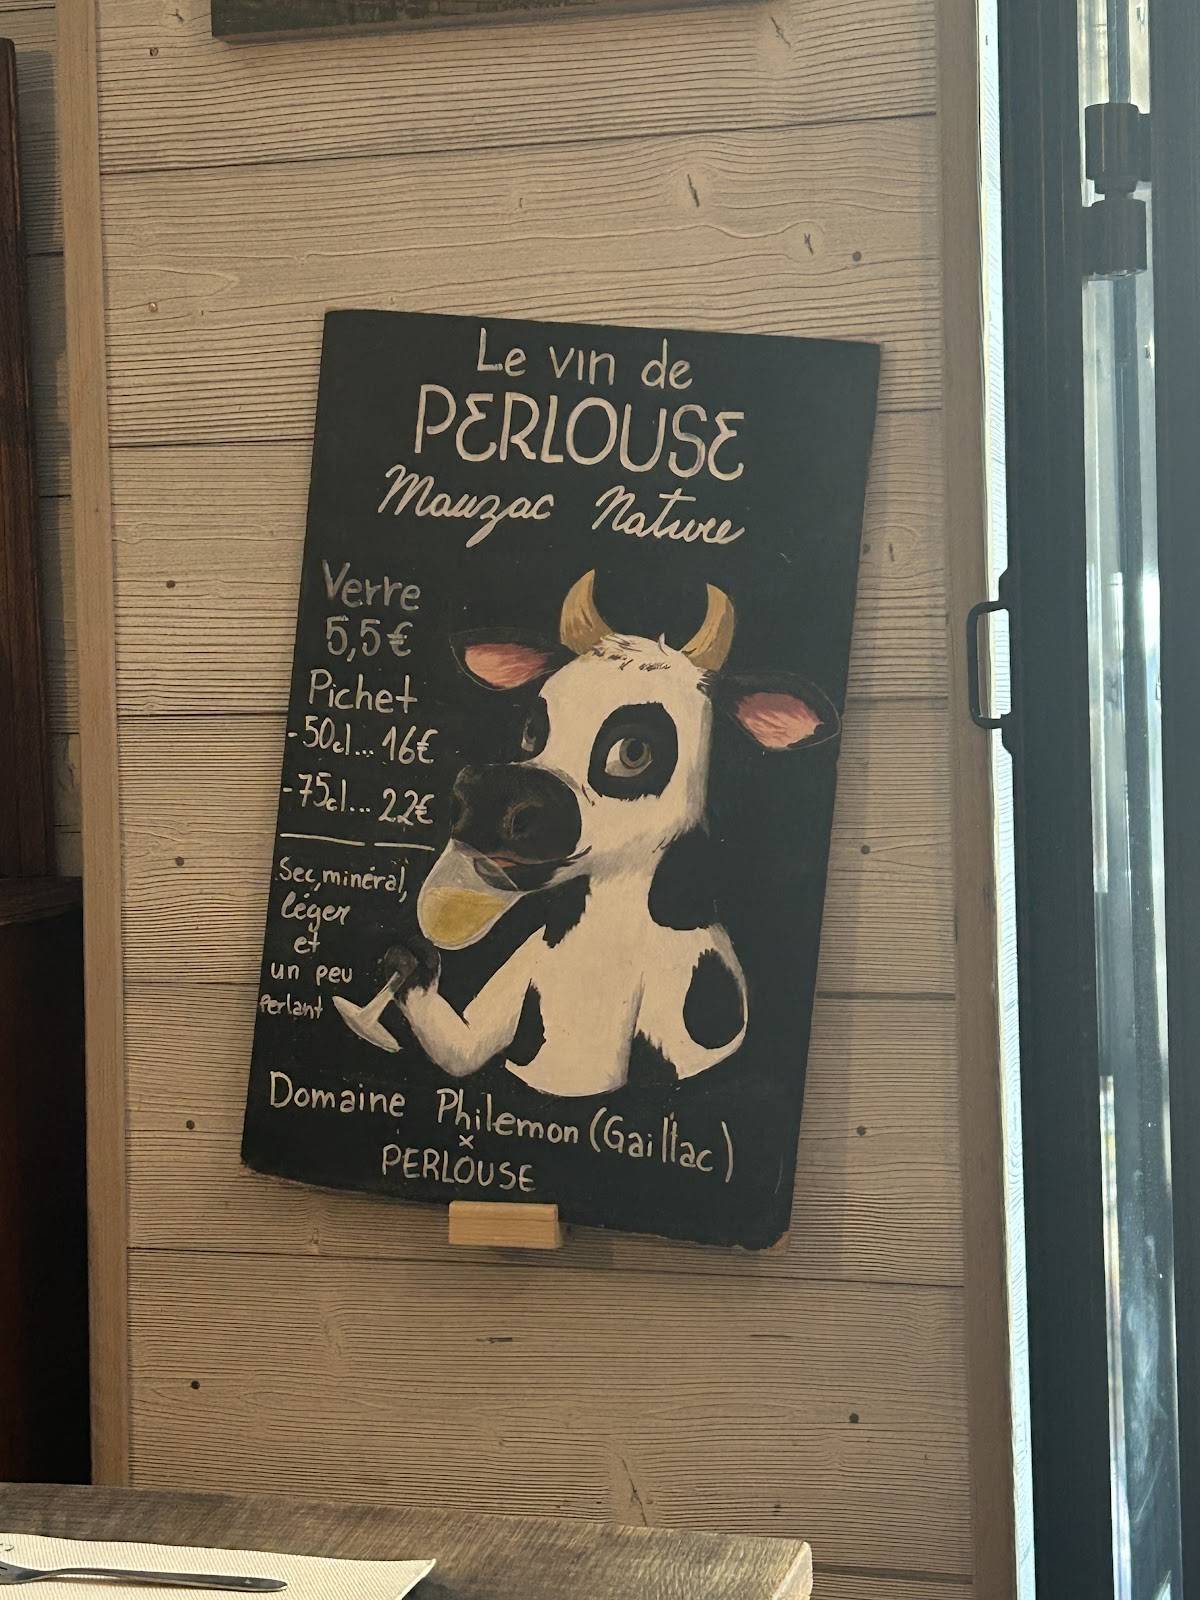 Le vin de
PERLOUSE
Mauzac Nature
Verre
5,5€
Pichet
-50cl... 16€
-75cl... 22€
Sec, minéral,
léger
et
un peu
Perlant
Domaine Philemon (Gaillac)
x
PERLOUSE